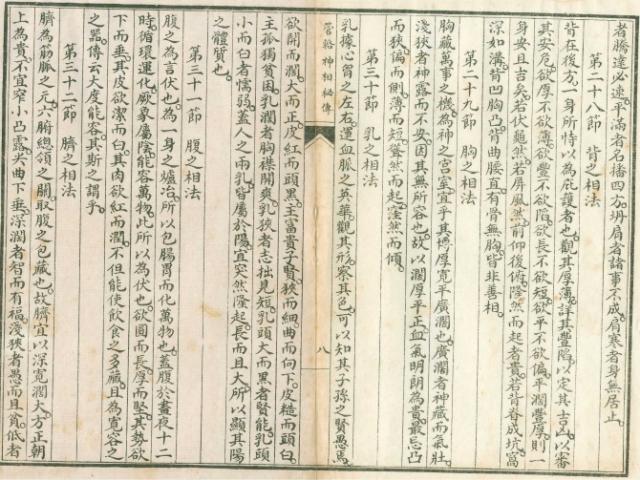 者騰達必速。平滿者名播四方。坍肩者諸事不成。肩寒者身無居止。
第二十八節　背之相法
背在後方。一身所恃以為庇護者也。觀其厚薄。詳其豐陷。以定其吉凶。以審
其安危。欲厚不欲薄。欲豐不欲陷。欲長不欲短。欲平不欲偏。平濶豐厚。則一
身安且吉矣。若伏龜然。若屏風然。前仰後俯。隆然而起者貴。若背脊成坑。窩
深如溝。背凹胸凸。背曲腰直。有骨無胸。皆非善相。
第二十九節　胸之相法
胸藏萬事之機。為神之宮室。宜乎其博厚寬平廣濶也。廣濶者神藏而氣壯
淺狹者神露而不安。因其無所容也。故以濶厚平正。血氣明朗為貴。最忌凸
而狹。偏而側。薄而短。聳然而起。窪然而傾。
第三十節　乳之相法
乳據心胷之左右。運血脈之英華。觀其形。察其色。可以知其子孫之賢愚焉。
管輅神相秘傳
八
欲開而濶。大而正。皮紅而頭黑。主富貴子賢。狹而細。曲而向下。皮糙而頭白。
主孤獨貧困。乳濶者胸襟開爽。乳狹者志拙見短。乳頭大而黑者賢能。乳頭
小而白者懦弱。蓋人之兩乳。皆屬於陽。宜突然隆起。長而且大。所以顯其陽
之體質也。
第三十一節　腹之相法
腹之為言伏也。為一身之爐冶。所以包腸胃而化萬物也。蓋腹於晝夜十二
時。循環運化。厥象屬陰。能容萬物。此所以為伏也。欲圓而長。厚而堅。其勢欲
下而垂。其皮欲潔而白。其肉欲紅而潤。不但能使飲食之多廳。且為寬容之
之器。傳云大度能容。其斯之謂乎。
第三十二節　臍之相法
臍為筋脈之元。六腑總領之關。取腹之包藏也。故臍宜以深寬濶大。方正朝
上為貴。不宜窄小凸露。尖曲下垂。深濶者智而有福。淺狹者愚而且貧。低者